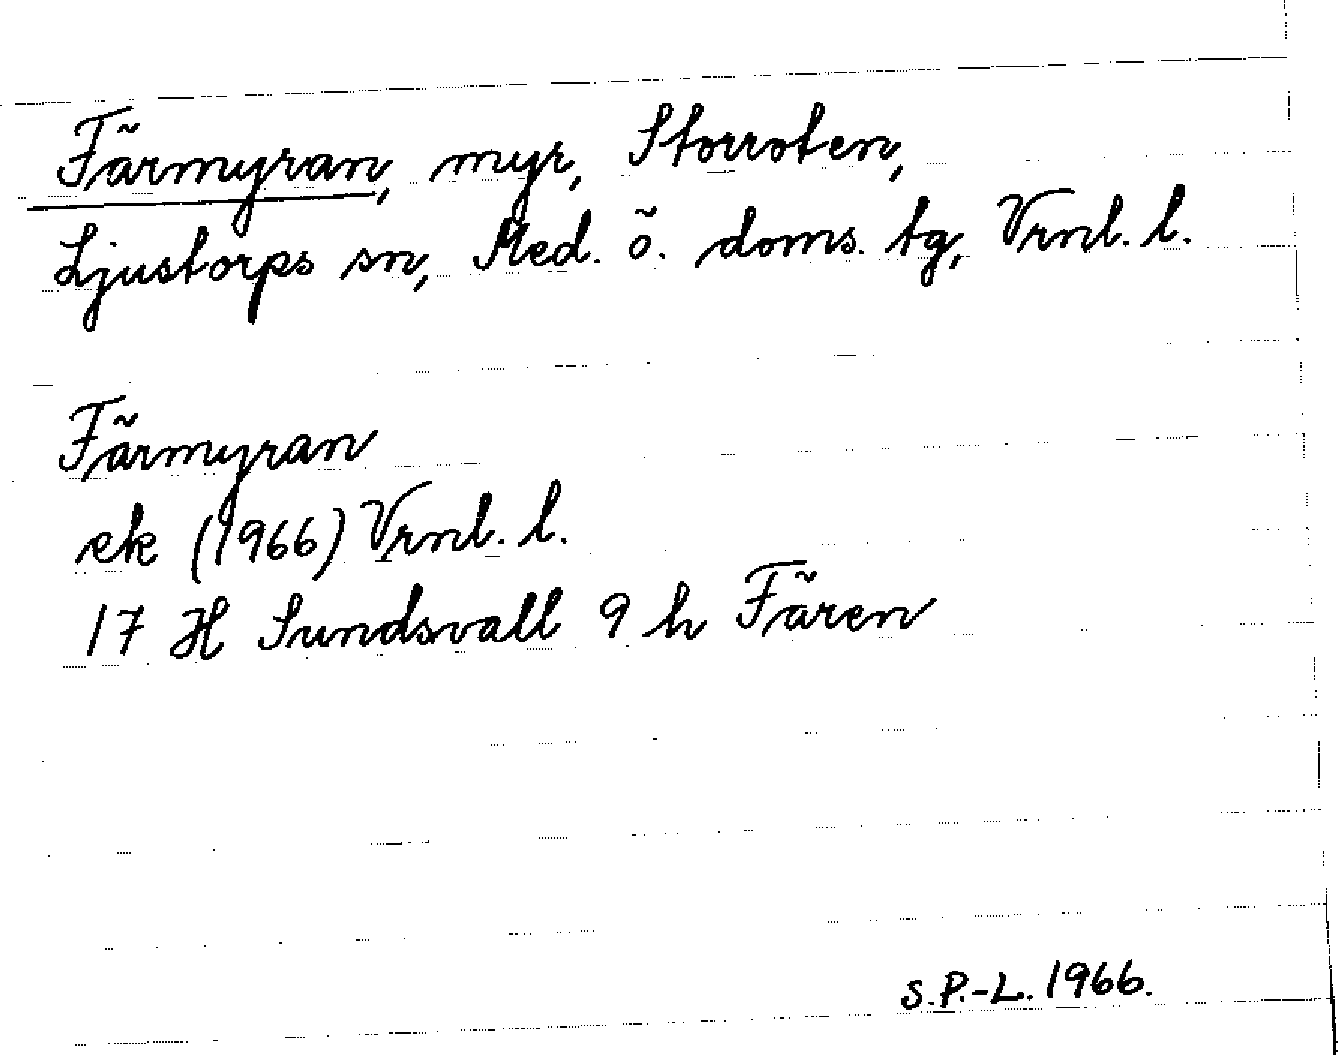 Färmyran, myr, Storroten,
Ljustorps sn, Med. ö. doms. tg, Vrnl. l.
Färmyran
ek (1966) Vrnl. l.
17 H Sundsvall 9 h Fären
S.P.-L. 1966.